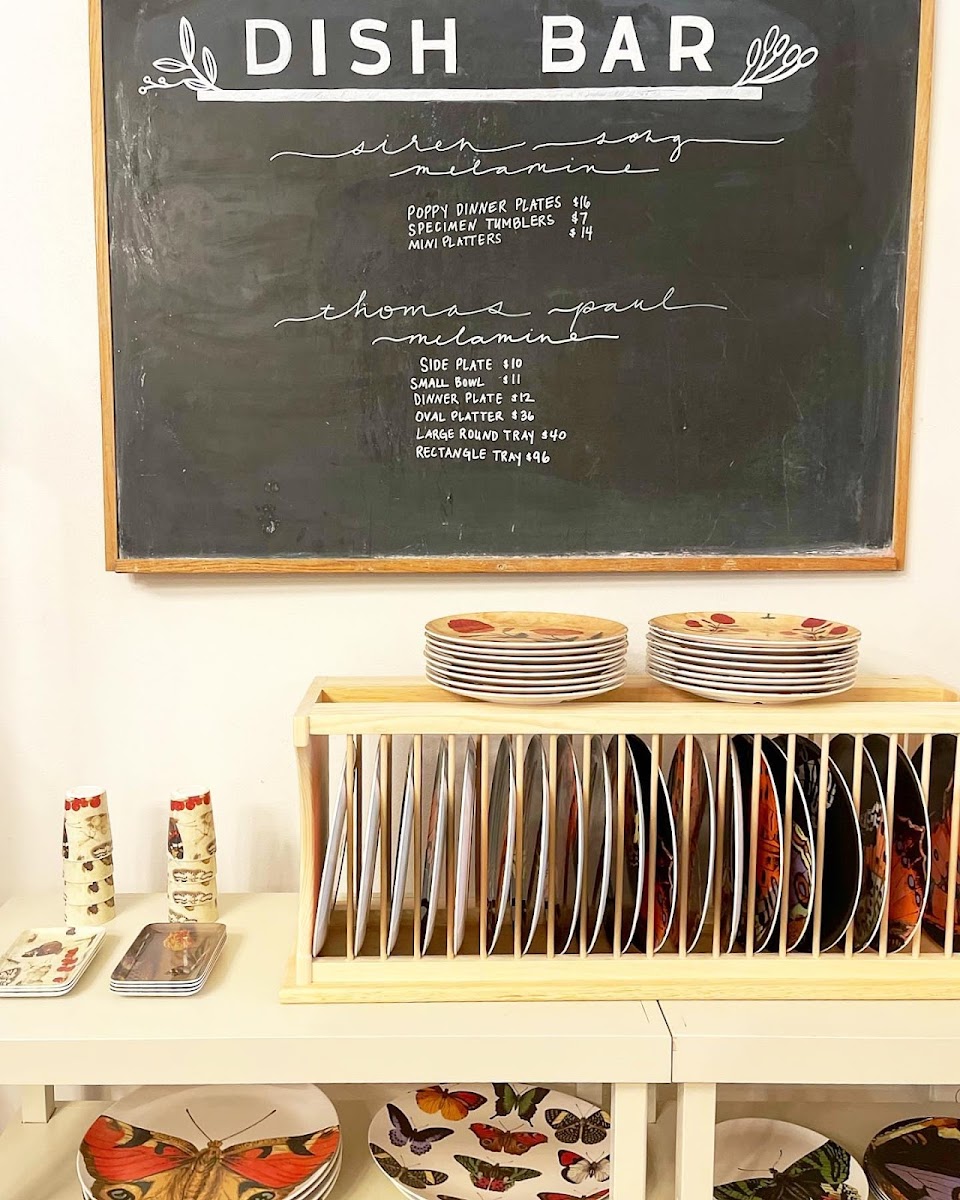 DISH BAR
siren song
melamine
POPPY DINNER PLATES $16
SPECIMEN TUMBLERS $7
MINI PLATTERS $14
thomas paul
melamine
SIDE PLATE $10
SMALL BOWL $11
DINNER PLATE $12
OVAL PLATTER $36
LARGE ROUND TRAY $40
RECTANGLE TRAY $96